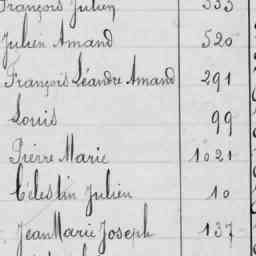 François Julien 333
Julien Amand 520
François Léandre Amand 291
Louis 99
Pierre Marie 1021
Célestin Julien 10
Jean Marie Joseph 137